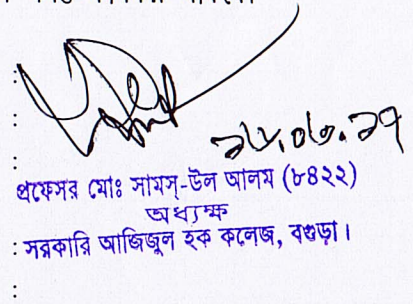 প্রফেসর মোঃ সামস্-উল আলম (৮৪২২)
অধ্যক্ষ
: সরকারি আজিজুল হক কলেজ, বগুড়া।